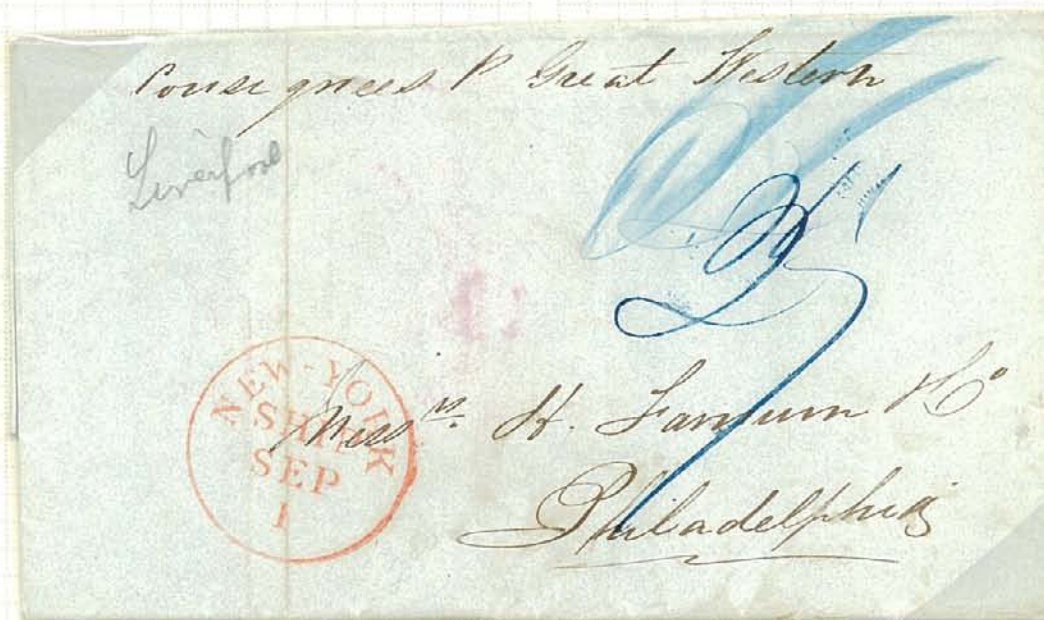 Consignees P Great Western
Liverpool
NEW-YORK
SHIP
SEP
1
Mess rs. H. Farnum & Co
Philadelphia